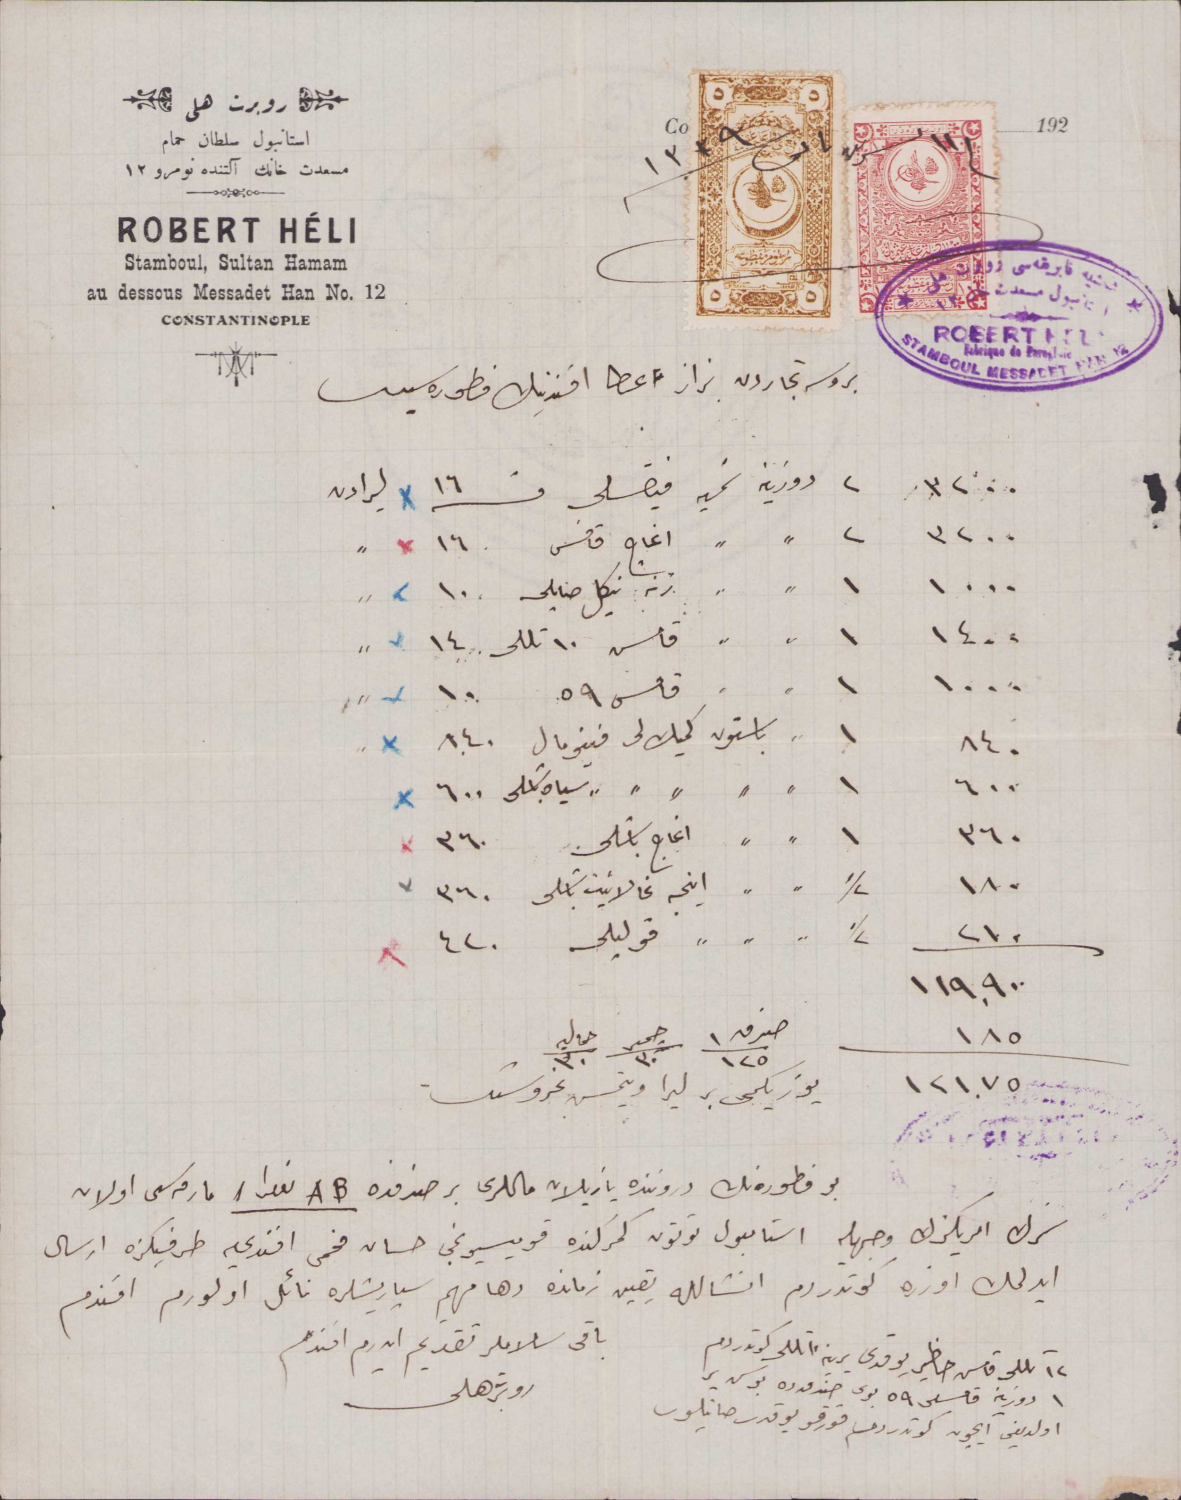 روبرت هلی
استانبول سلطان حمام
مسعدت خانك آلتنده نومرو ١٢
ROBERT HÉLI
Stamboul, Sultan Hamam
au dessous Messadet Han No. 12
CONSTANTINOPLE
Co 192
١٣٣٩
٥ ٥
٥ ٥
شمسیه فابریقه‌سی روبرت هلی
استانبول مسعدت خان ١٢
ROBERT HÉLI
Fabrique de Parapluie
STAMBOUL MESSADET HAN 12
بروسه تجاردن بزاز عطا افندینك فطوره‌سیدر
٣٢٠٠ ٢ دوزینه شمسیه ١٦ لیرادن
٣٢٠٠ ٢ " " اغاج قامش ١٦ "
١٠٠٠ ١ " " نیكل صاپلی ١٠ "
١٤٠٠ ١ " " قامش ١٠ تللی ١٤ "
١٠٠٠ ١ " " قامش ٥٩ ١٠ "
٨٤٠ ١ " باستون كمیك لی ٨٤٠ "
٦٠٠ ١ " " " " " سیاه باشلی ٦٠٠
٣٦٠ ١ " " اغاج باشلی ٣٦٠
١٨٠ ½ " " اینجه غالالیت باشلی ٣٦٠
٢١٠ ½ " " " قولپلی ٤٢٠
١١٩,٩٠
١٨٥ صندق ١ ١٢٥ چمبر ٣٠ حمالیه ٣٠
١٢١,٧٥ یوز یكرمی بر لیرا ویتمش بش غروشدر
بو فطوره‌نك دروننده یازیلان ماللری بر صندقده AB نومرا ١ مارقه‌سی اولان
سزك امریكزك وجهله استانبول توتون كمركنده قومیسیونجی حسان فخمی افندی‌یه طرفیكزه ارسال
ایدلمك اوزره كوندردم انشالله یقین زمانده دها مهم سپاریشلره نائل اولورم افندم
باقی سلاملر تقدیم ایدرم افندم
روبرت هلی
١٢ تللی قامش حاظر یوقدی یرینه ١٠ تللی كوندردم
١ دوزینه قامشلی ٥٩ بوی صندقده بوش یر
اولدیغی ایچون كوندردم قورقو یوقدر صاتیلور